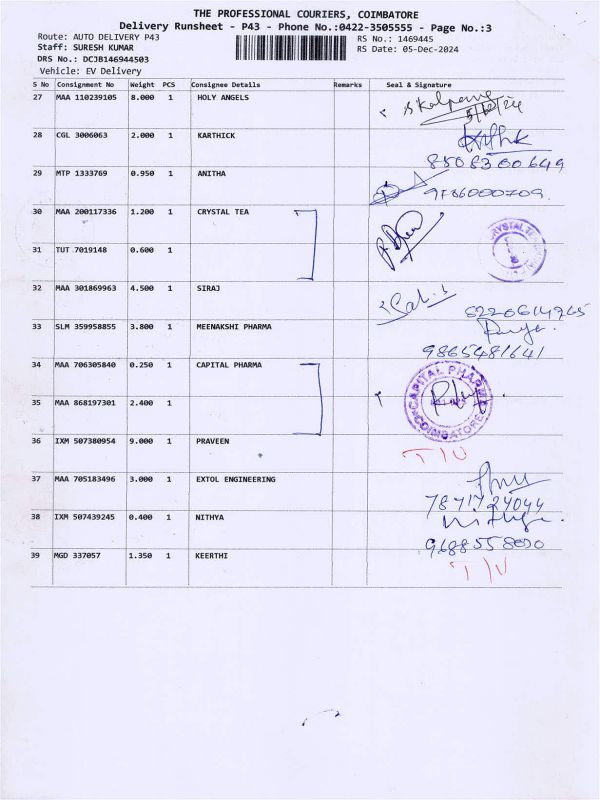 THE PROFESSIONAL COURIERS, COIMBATORE
Delivery Runsheet - P43 - Phone No.:0422-3505555 - Page No.:3
Route: AUTO DELIVERY P43 RS No.: 1469445
Staff: SURESH KUMAR RS Date: 05-Dec-2024
DRS No.: DCJB146944503
Vehicle: EV Delivery
S No Consignment No Weight PCS Consignee Details Remarks Seal & Signature
27 MAA 110239105 8.000 1 HOLY ANGELS
5/12/24
28 CGL 3006063 2.000 1 KARTHICK
8508300649
29 MTP 1333769 0.950 1 ANITHA
9786000709
30 MAA 200117336 1.200 1 CRYSTAL TEA
CRYSTAL TEA
31 TUT 7019148 0.600 1
32 MAA 301869963 4.500 1 SIRAJ
33 SLM 359958855 3.800 1 MEENAKSHI PHARMA
9865481641
34 MAA 706305840 0.250 1 CAPITAL PHARMA
CAPITAL PHARMA
COIMBATORE
35 MAA 868197301 2.400 1
36 IXM 507380954 9.000 1 PRAVEEN
37 MAA 705183496 3.000 1 EXTOL ENGINEERING
38 IXM 507439245 0.400 1 NITHYA
39 MGD 337057 1.350 1 KEERTHI